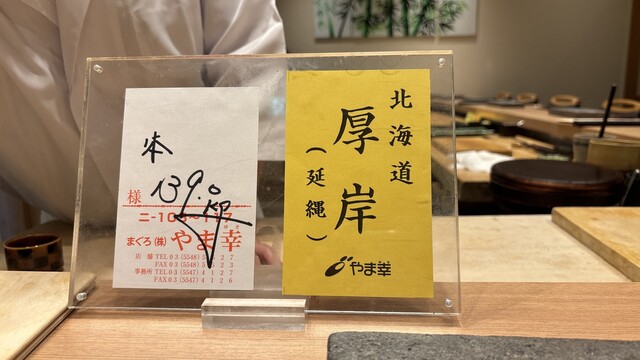 本
139.0
KP
様
まぐろ(株)やま幸
店舗 TEL03(5548)
FAX03(5548)
事務所 TEL03(5547)4127
FAX03(5547)4126
北海道
厚岸
(延縄)
やま幸